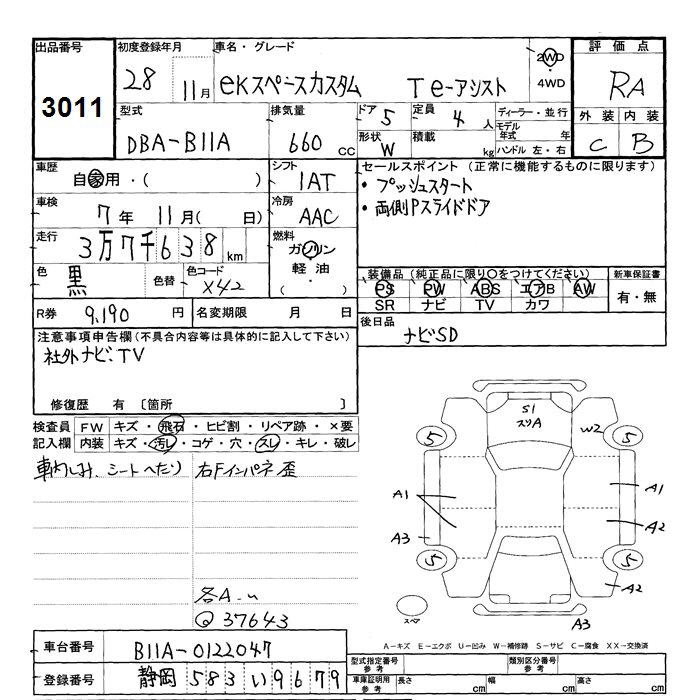 出品番号 初度登録年月 車名・グレード 評価点
3011 28 11月 eKスペースカスタム T e-アシスト 2WD ・ 4WD RA
型式 排気量 ドア 5 定員 4人 ディーラー・並行 外装 内装
DBA-B11A 660cc 形状 W 積載 kg モデル年式 年 C B
ハンドル 左・右
車歴 シフト セールスポイント (正常に機能するものに限ります)
自家用・( ) IAT ・プッシュスタート
車検 7年 11月( 日) 冷房 AAC ・両側Pスライドドア
走行 3万7千638km 燃料 ガソリン
軽油・( )
色 黒 色替 色コード X42 装備品(純正品に限り○をつけてください) 新車保証書
PS PW ABS エアB AW 有・無
SR ナビ TV カワ
R券 9,190円 名変期限 月 日 後日品
ナビSD
注意事項申告欄(不具合内容等は具体的に記入して下さい)
社外ナビ、TV
修復歴 有 〔箇所 〕
検査員 FW キズ・飛石・ヒビ割・リペア跡・×要
記入欄 内装 キズ・汚レ・コゲ・穴・スレ・キレ・破レ
車わしみ、シートへたり 右Fインパネ歪
S1
スリA
W2
5 5
A1 A1
A2
A3
5 5
A2
スペア A3
各A
Q 37643
A-キズ E-エクボ U-凹み W-補修跡 S-サビ C-腐食 XX-交換済
車台番号 B11A-0122047 型式指定番号 参考 類別区分番号 参考
登録番号 静岡 583 い 9679 車庫証明用 参考 長さ cm 幅 cm 高さ cm